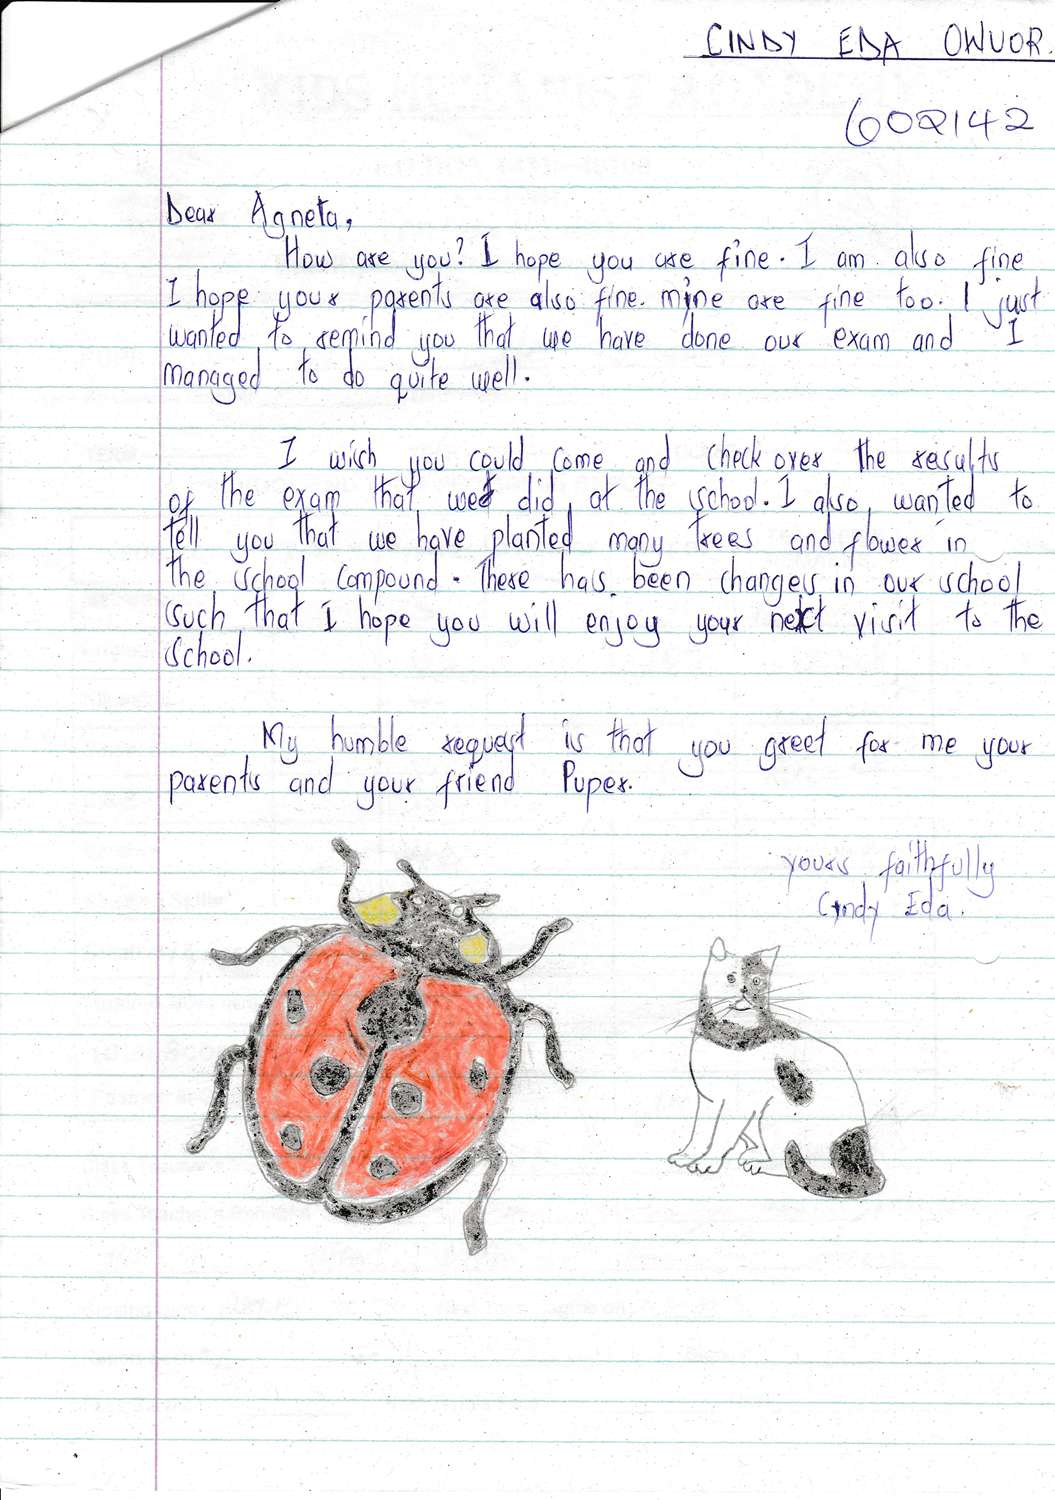 CINDY EDA OWUOR.
602142
Dear Agneta,
How are you? I hope you are fine. I am also fine
I hope your parents are also fine. mine are fine too. I just
wanted to remind you that we have done our exam and I
managed to do quite well.
I wish you could come and check over the results
of the exam that we did at the school. I also wanted to
tell you that we have planted many trees and flower in
the school compound. There has been changes in our school
such that I hope you will enjoy your next visit to the
school.
My humble request is that you greet for me your
parents and your friend Puper.
yours faithfully
Cindy Eda.